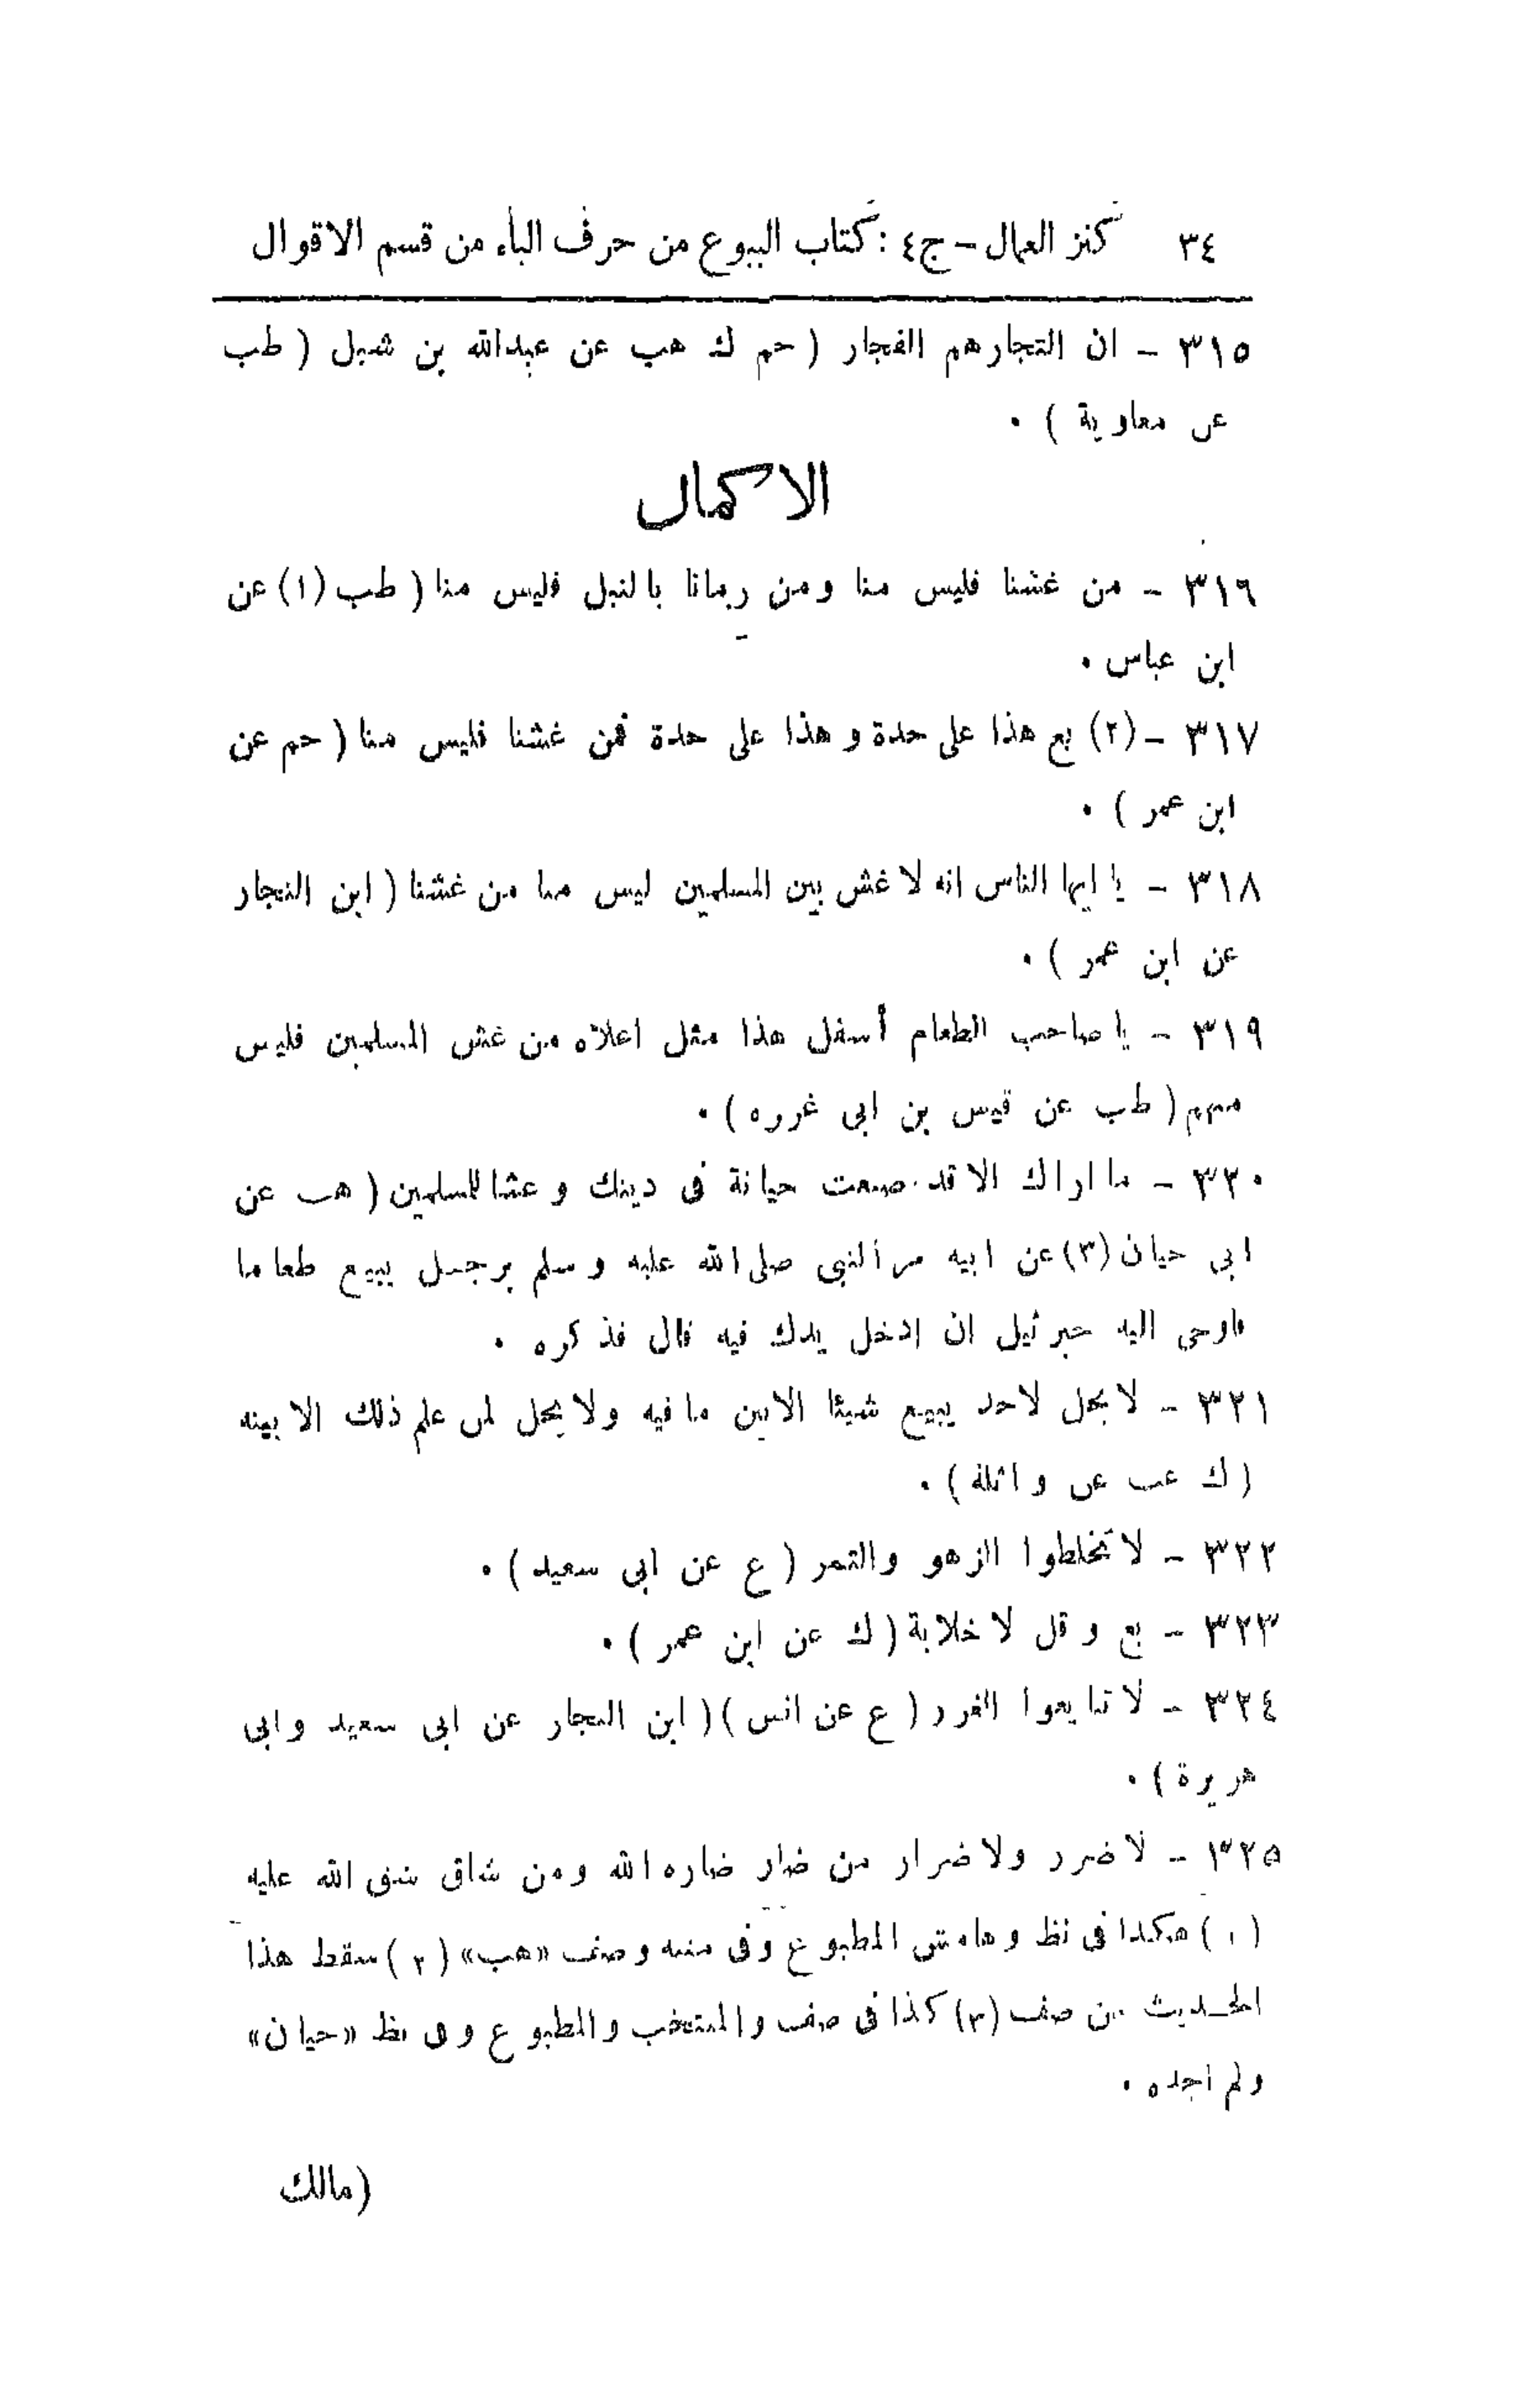 ٣٤ كنز العمال – ج٤ : كتاب البيوع من حرف الباء من قسم الاقوال
٣١٥ – ان التجارهم الفجار ( حم ك هب عن عبدالله بن شبل ( طب
عن معاوية ) .
الاكمال
٣١٦ – من غشنا فليس منا ومن رمانا بالنبل فليس منا ( طب (١) عن
ابن عباس .
٣١٧ – (٢) بع هذا على حدة وهذا على حدة فمن غشنا فليس منا ( حم عن
ابن عمر ) .
٣١٨ – يا ايها الناس انه لا غش بين المسلمين ليس منا من غشنا ( ابن النجار
عن ابن عمر ) .
٣١٩ – يا صاحب الطعام أسفل هذا مثل اعلاه من غش المسلمين فليس
منهم ( طب عن قيس بن ابى غرزه ) .
٣٢٠ – ما اراك الا قد صنعت خيانة فى دينك وغشا للمسلمين ( هب عن
ابى حيان (٣) عن ابيه مر النبى صلى الله عليه وسلم برجل يبيع طعاما
فاوحى اليه جبرئيل ان ادخل يدك فيه قال فذكره .
٣٢١ – لا يحل لاحد يبيع شيئا الا بين ما فيه ولا يحل لمن علم ذلك الا بينه
( ك عب عن واثلة ) .
٣٢٢ – لا تخلطوا الزهو والتمر ( ع عن ابى سعيد ) .
٣٢٣ – بع وقل لا خلابة ( ك عن ابن عمر ) .
٣٢٤ – لا تبايعوا الغرر ( ع عن انس ) ( ابن النجار عن ابى سعيد وابى
هريرة ) .
٣٢٥ – لا ضرر ولا ضرار من ضار ضاره الله ومن شاق شق الله عليه
(١) هكذا فى نظ وهامش المطبوع وفى متنه وصف «هب» (٢) سقط هذا
الحديث من صف (٣) كذا فى صف والمنتخب والمطبوع وفى نظ «حيان»
ولم اجده .
(مالك